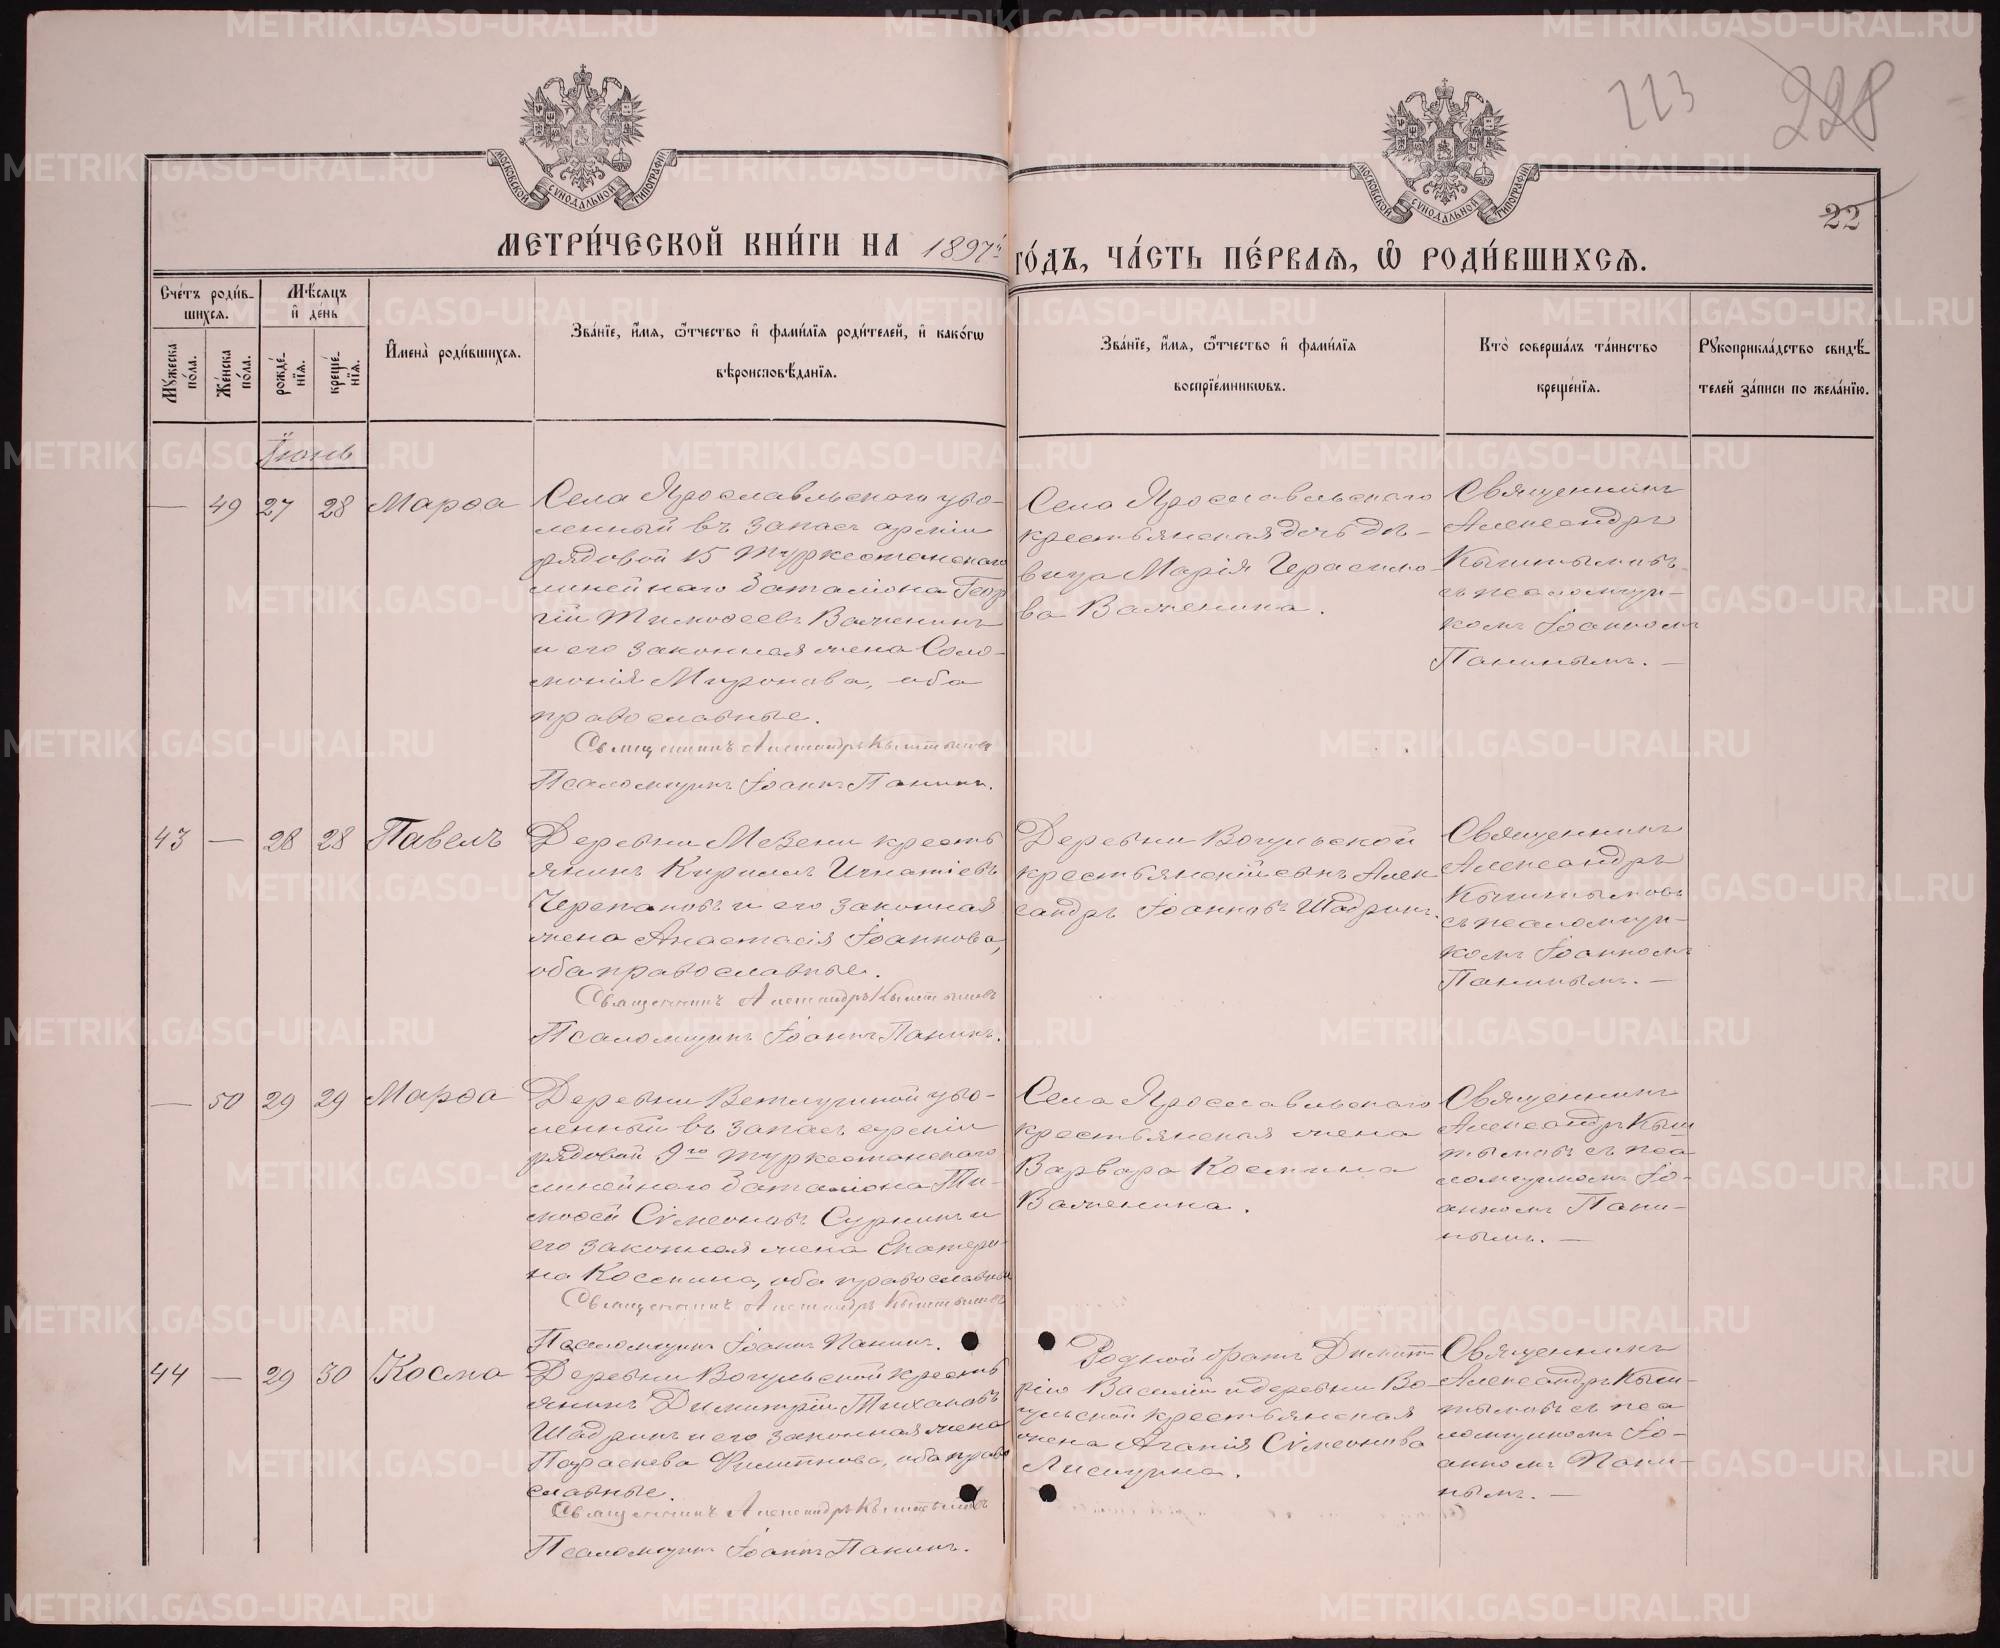 223
228
22
МОСКОВСКОЙ СѴНОДАЛЬНОЙ ТИПОГРАФІИ
МОСКОВСКОЙ СѴНОДАЛЬНОЙ ТИПОГРАФІИ
МЕТРИ́ЧЕСКОЙ КНИ́ГИ НА 1897й
ГО́ДЪ, ЧА́СТЬ ПЕ́РВАЯ, Ѽ РОДИ́ВШИХСЯ.
Сче́тъ роди́в-
шихся.
Мꙋ́жеска
по́ла.
Же́нска
по́ла.
Мѣ́сяцъ
и҆ де́нь
рожде́-
нїя.
креще́-
нїя.
И҆мена̀ роди́вшихся.
Зва́нїе, и҆́мя, ѻ҆́тчество и҆ фами́лїя роди́телей, и҆ како́гѡ
вѣроисповѣ́данїя.
Зва́нїе, и҆́мя, ѻ҆́тчество и҆ фами́лїя
воспрїе́мникѡвъ.
Кто̀ соверша́лъ та́инство
креще́нїя.
Рꙋкоприкла́дство свидѣ́-
телей за́писи по жела́нїю.
Іюнь
— 49 27 28 Марѳа
Села Ярославльскаго уво-
ленный въ запасъ арміи
рядовой 15 Туркестанскаго
линейнаго баталіона Геор
гій Тимоѳеевъ Важенинъ
и его законная жена Соло-
монія Миронова, оба
православные.
Священникъ Александръ Кыштымовъ
Псаломщикъ Іоаннъ Панинъ.
Села Ярославльскаго
крестьянская дочь дѣ-
вица Марія Герасимо-
ва Важенина.
Священникъ
Александръ
Кыштымовъ
съ псаломщи-
комъ Іоанномъ
Панинымъ. —
43 — 28 28 Павелъ
Деревни Мезени кресть
янинъ Кириллъ Игнатіевъ
Черепановъ и его законная
жена Анастасія Іоаннова,
оба православные.
Священникъ Александръ Кыштымовъ
Псаломщикъ Іоаннъ Панинъ.
Деревни Вогульской
крестьянскій сынъ Алек
сандръ Іоанновъ Шадринъ.
Священникъ
Александръ
Кыштымовъ
съ псаломщи-
комъ Іоанномъ
Панинымъ. —
— 50 29 29 Марѳа
Деревни Ветлугиной уво-
ленный въ запасъ арміи
рядовой 9го туркестанскаго
линейнаго баталіона Ти-
моѳей Сѵмеоновъ Суркинъ и
его законная жена Екатери-
на Космина, оба православные
Священникъ Александръ Кыштымовъ
Псаломщикъ Іоаннъ Панинъ.
Села Ярославльскаго
крестьянская жена
Варвара Космина
Важенина.
Священникъ
Александръ Кыш
тымовъ съ пса-
ломщикомъ Іо-
анномъ Пани-
нымъ. —
44 — 29 30 Косма
Деревни Вогульской кресть
янинъ Димитрій Тихановъ
Шадринъ и его законная жена
Параскева Филиппова, оба право
славные.
Священникъ Александръ Кыштымовъ
Псаломщикъ Іоаннъ Панинъ.
Родной братъ Димит
рію Василій и деревни Во-
гульской крестьянская
жена Агапія Сѵмеонова
Лисицина.
Священникъ
Александръ Кыш-
тымовъ съ пса
ломщикомъ Іо-
анномъ Пани-
нымъ. —
METRIKI.GASO-URAL.RU